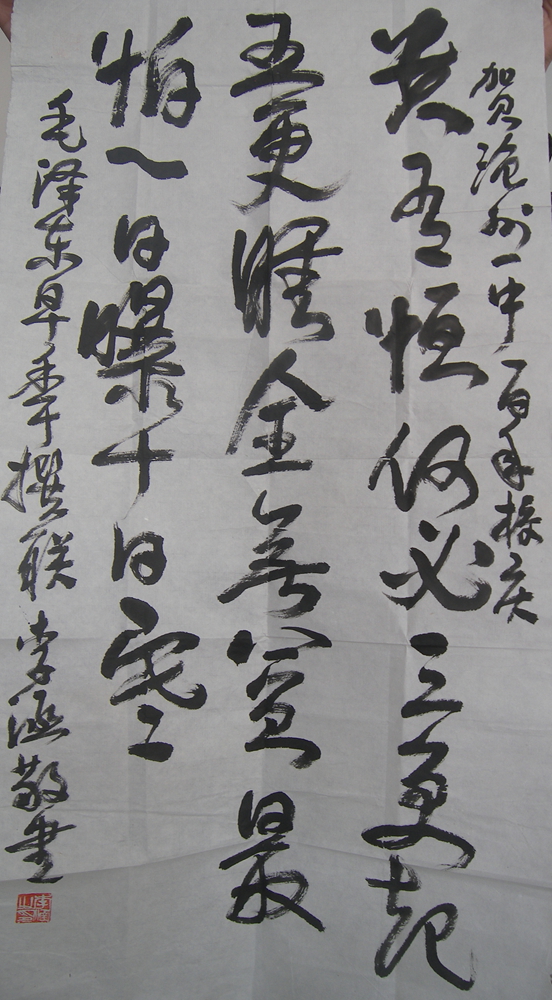 贺沧州一中一百年校庆
贵有恒何必三更起
五更睡全無益最
怕一日曝十日寒
毛泽东早年撰联 李涵敬书